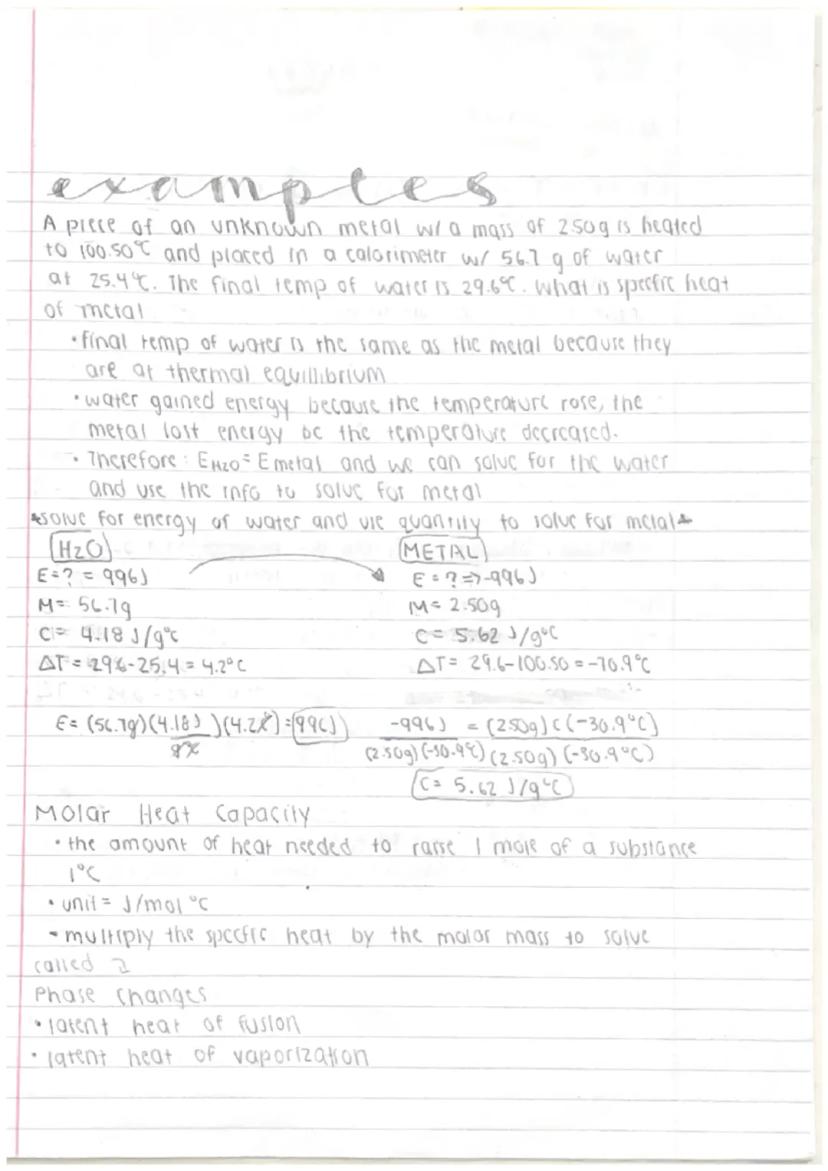 examples
A piece of an unknown metal w/ a mass of 2.50g is heated
to 100.50°C and placed in a calorimeter w/ 56.7 g of water
at 25.4°C. The final temp of water is 29.6°C. What is specific heat
of metal
• final temp of water is the same as the metal because they
are at thermal equillibrium
• water gained energy because the temperature rose, the
metal lost energy bc the temperature decreased.
• Therefore: EH2O = Emetal and we can solve for the water
and use the info to solve for metal
*solve for energy of water and use quantity to solve for metal*
H2O METAL
E=? = 996J E = ? => -996J
M= 56.7g M= 2.50g
C= 4.18 J/g°C C= 5.62 J/g°C
ΔT = 29.6-25.4 = 4.2°C ΔT= 29.6-100.50 = -70.9°C
E= (56.7g)(4.18J)(4.2°C) = 996J -996J = (2.50g) C (-30.9°C)
g°C (2.50g)(-30.9°C) (2.50g) (-30.9°C)
C= 5.62 J/g°C
Molar Heat Capacity
• the amount of heat needed to raise 1 mole of a substance
1°C
• unit = J/mol °C
- multiply the specific heat by the molar mass to solve
called
Phase Changes
• latent heat of fusion
• latent heat of vaporization